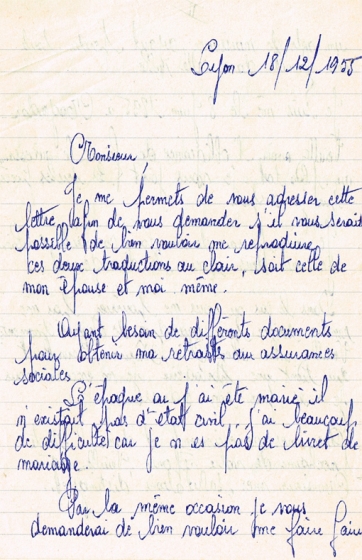 Lyon 18/12/1955
Monsieur,
Je me permets de vous adresser cette
lettre afin de vous demander s'il vous serait
possible de bien vouloir me reproduire
ces deux traductions au clair, soit celle de
mon Epouse et moi même.
Ayant besoin de différents documents
pour obtenir ma retraite aux assurances
sociales
L'époque au j'ai été marié il
n'existait pas d'état civil, j'ai beaucoup
de difficulté car je n es pas de livret de
mariage.
Par la même occasion je vous
demanderai de bien vouloir me faire